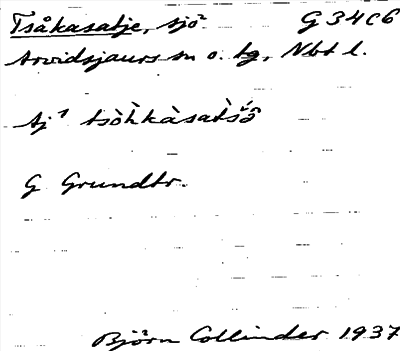 Tsåkasatje, sjö G 34 c 6
Arvidsjaurs sn o. tg, Nbt l.
Aj² tsòhkàsatsǒ̂
G Grundtr.
Björn Collinder 1937